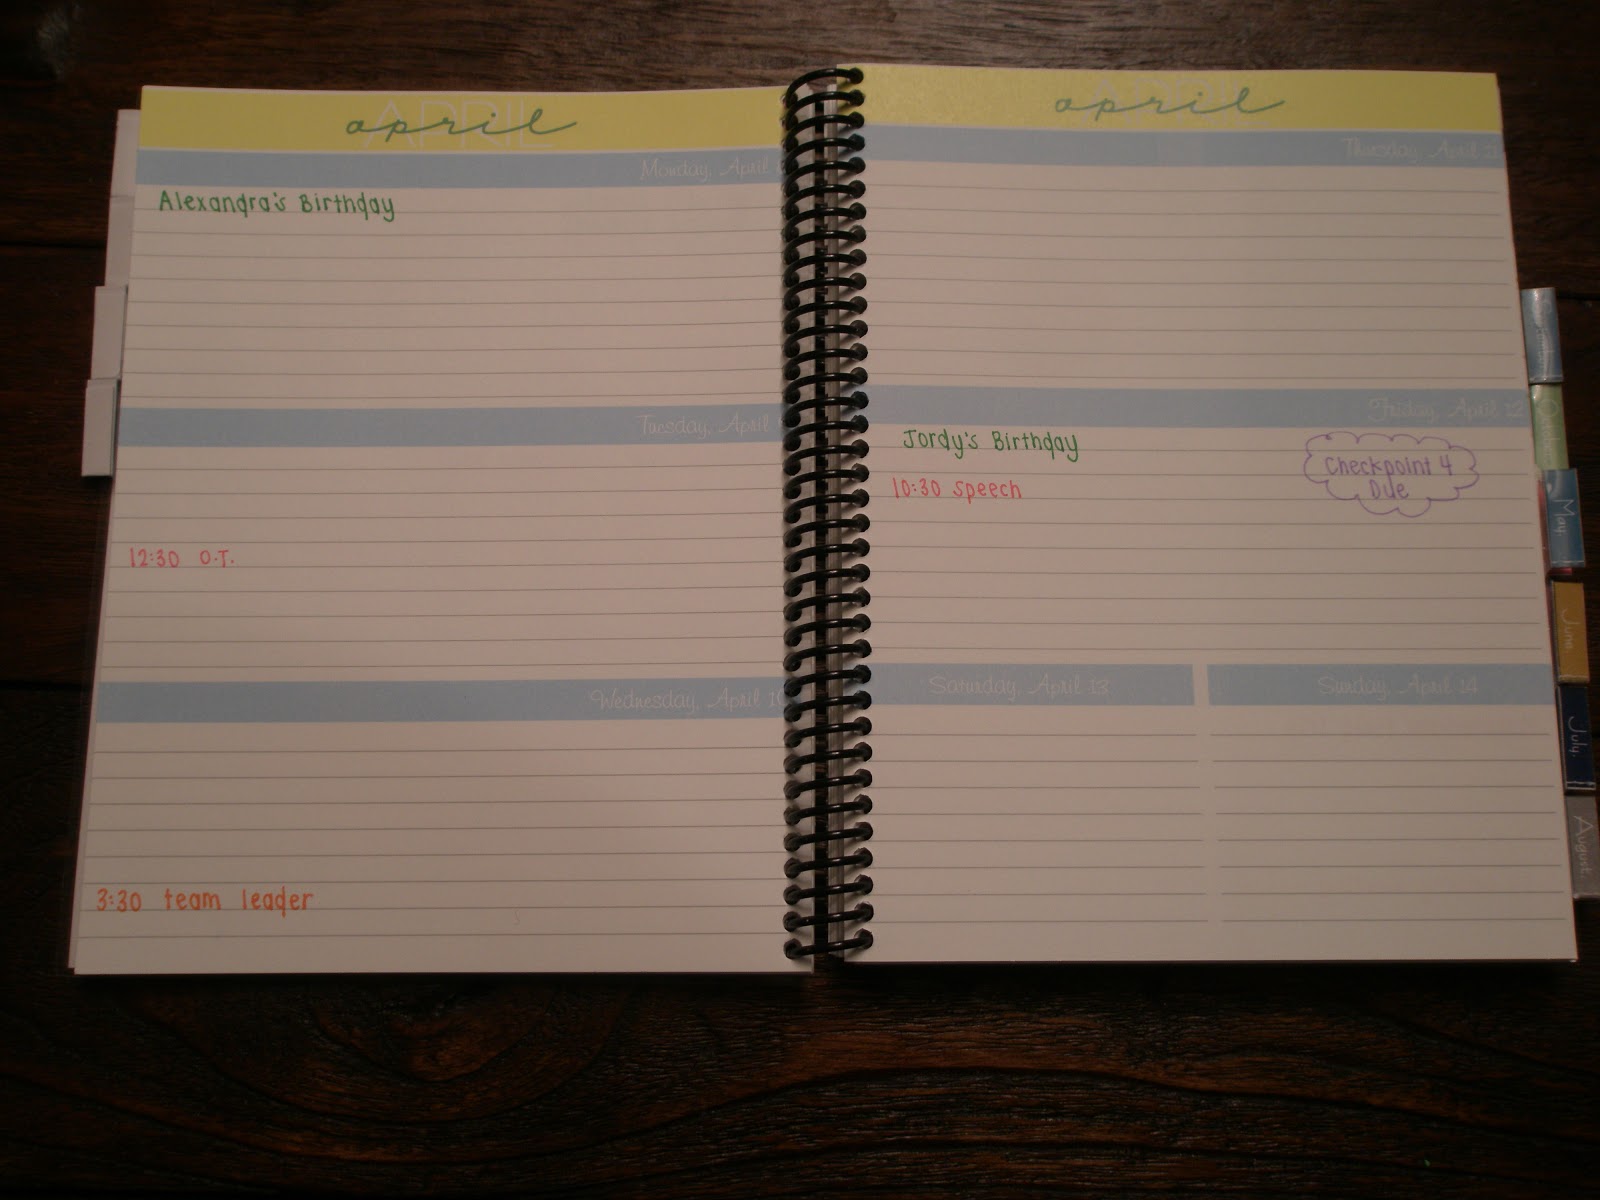 APRIL
april
Monday, April
Alexandra's Birthday
Tuesday, April
12:30 O.T.
Wednesday, April 10
3:30 team leader
april
Thursday, April 11
Friday, April 12
Jordy's Birthday
10:30 speech
Checkpoint 4
Due
Saturday, April 13
Sunday, April 14
May
June
July
August